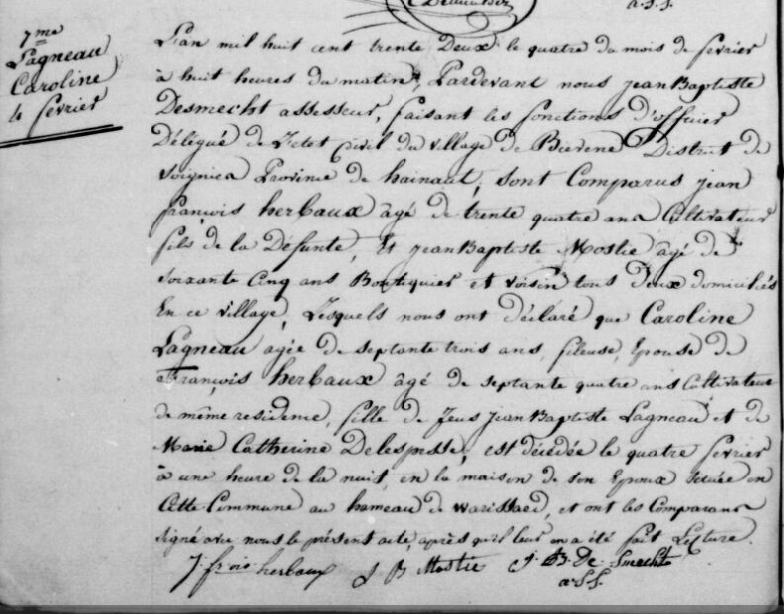 a.S.S.
7me
Lagneau
Caroline
4 fevrier
L'an mil huit cent trente Deux le quatre du mois de fevrier
à huit heures du matin, Pardevant nous jean Baptiste
Desmecht assesseur, faisant les fonctions d'officier
Délégué de L'etat Civil du village de Bievene District de
Soignies Province de hainaut, sont Comparus jean
françois herbaux âgé de trente quatre ans Cultivateur
fils de la Défunte, Et jean Baptiste Mostie âgé de
soixante Cinq ans Boutiquier et voisin tous deux domiciliés
En ce village, Lesquels nous ont déclaré que Caroline
Lagneau agée de septante trois ans, fileuse, Epouse de
François herbaux âgé de septante quatre ans Cultivateur
de même residence, fille de feus jean Baptiste Lagneau et de
Marie Catherine Delespesse, est décédée le quatre fevrier
à une heure de la nuit, en la maison de son Epoux située en
Cette Commune au hameau de Warissaed, et ont les Comparans
signé avec nous le présent acte, après qu'il leur en a été fait Lecture.
J. frois herbaux J B Mostie J. B. De Smecht
a.S.S.